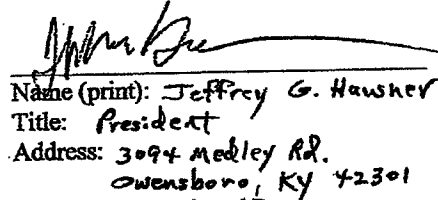 Name (print): Jeffrey G. Hawsner
Title: President
Address: 3094 Medley Rd.
Owensboro, KY 42301